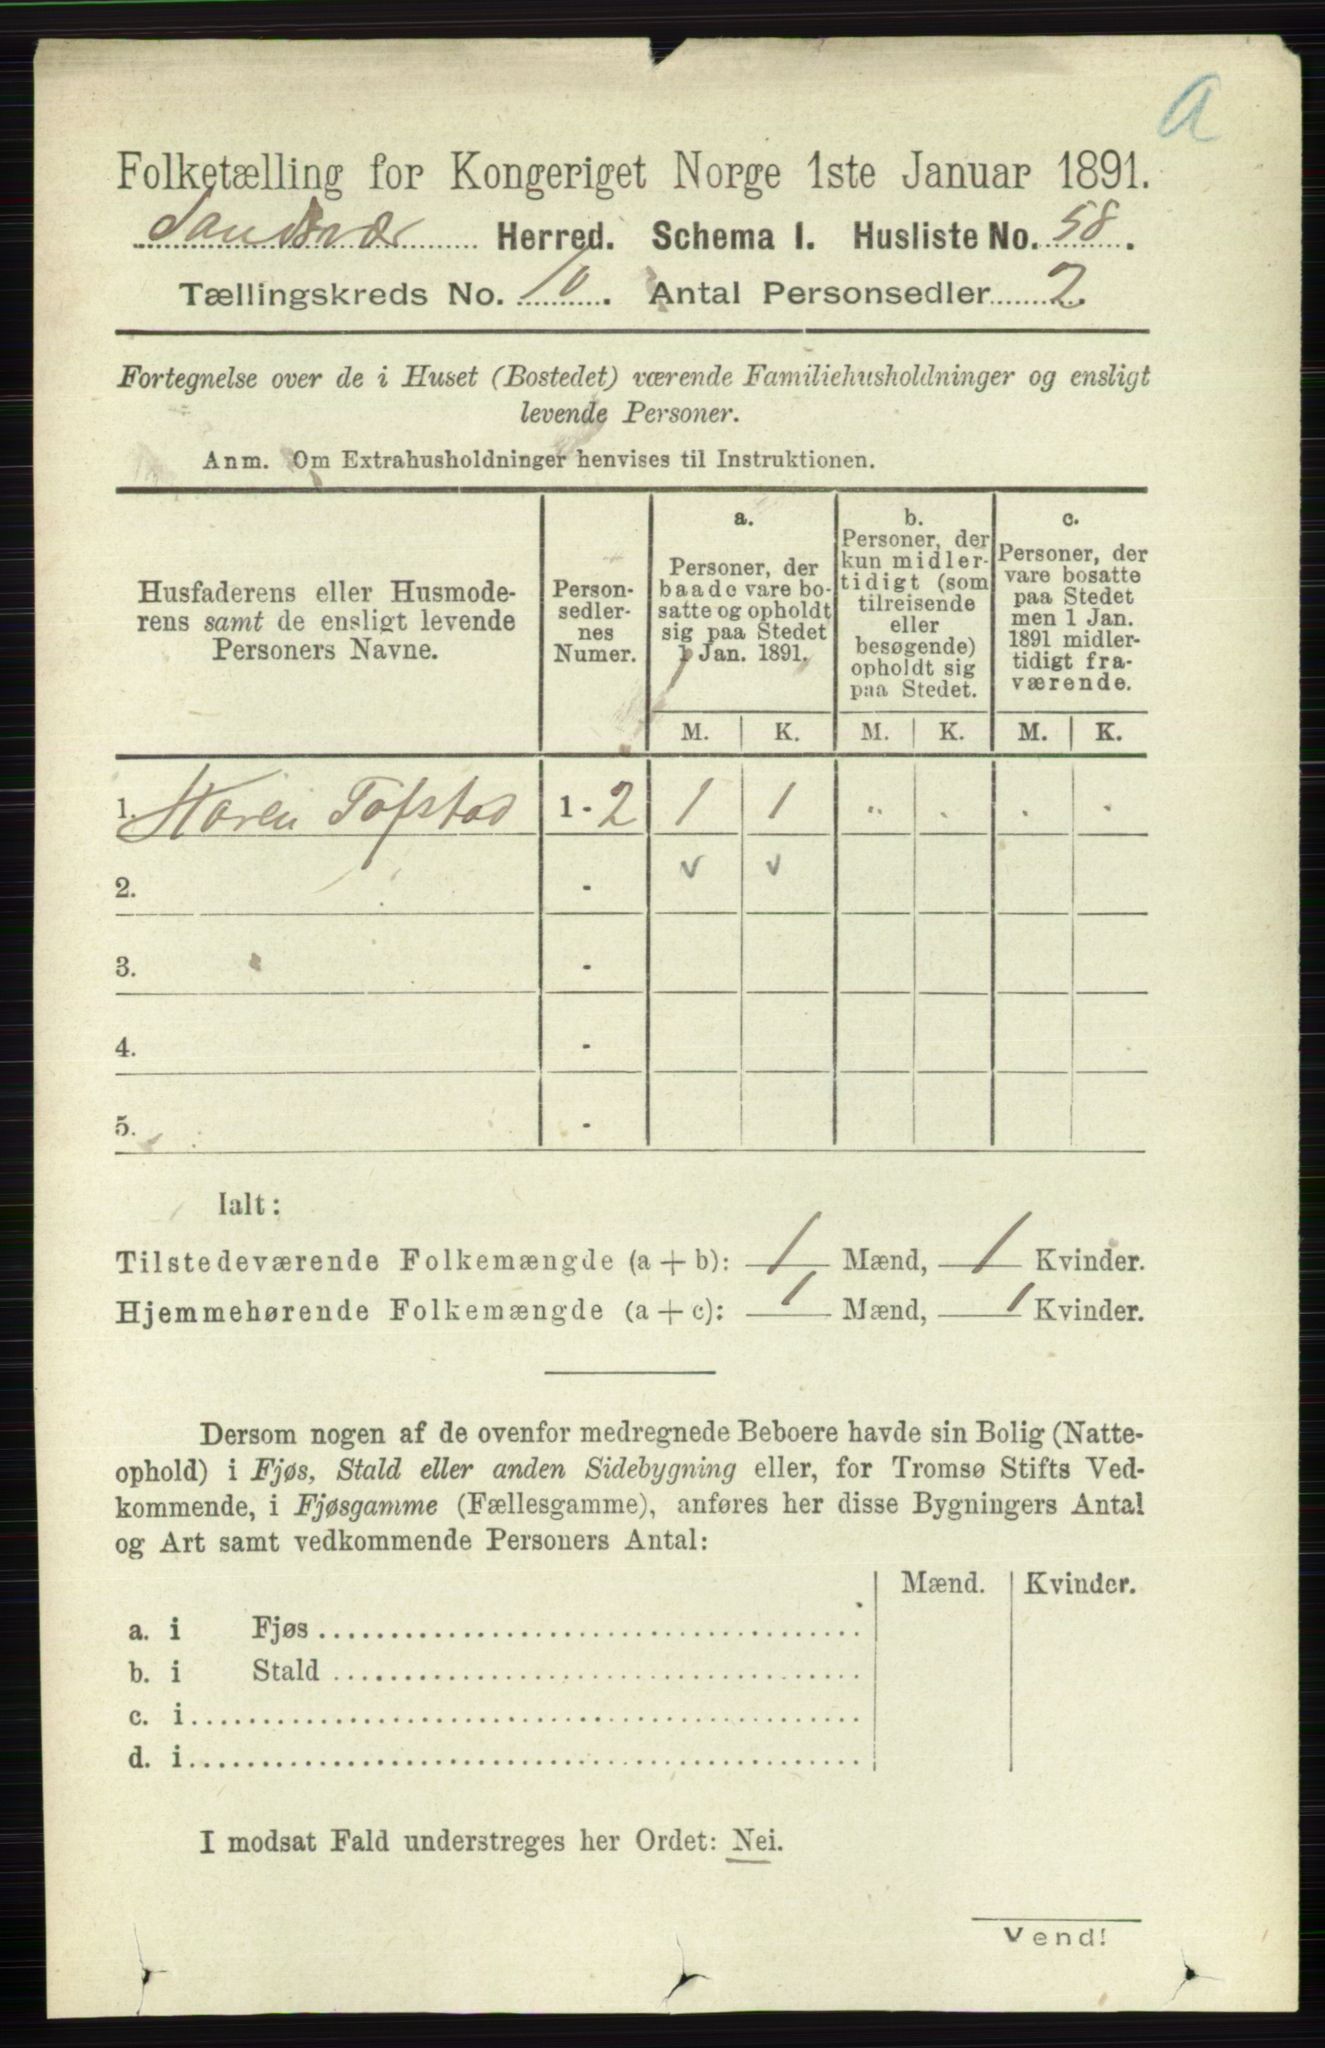 a
Folketælling for Kongeriget Norge 1ste Januar 1891.
Sandsvær Herred. Schema I. Husliste No. 58.
Tællingskreds No. 10. Antal Personsedler 2.
Fortegnelse over de i Huset (Bostedet) værende Familiehusholdninger og ensligt
levende Personer.
Anm. Om Extrahusholdninger henvises til Instruktionen.
Husfaderens eller Husmode-
rens samt de ensligt levende
Personers Navne.
Person-
sedler-
nes
Numer.
a.
Personer, der
baade vare bo-
satte og opholdt
sig paa Stedet
1 Jan. 1891.
b.
Personer, der
kun midler-
tidigt (som
tilreisende
eller
besøgende)
opholdt sig
paa Stedet.
c.
Personer, der
vare bosatte
paa Stedet
men 1 Jan.
1891 midler-
tidigt fra-
værende.
M. K. M. K. M. K.
1. Karen Tofstad 1 - 2 1 1 .. . . .
2. - v v
3. -
4. -
5. -
Ialt:
Tilstedeværende Folkemængde (a + b): 1 Mænd, 1 Kvinder.
Hjemmehørende Folkemængde (a + c): 1 Mænd, 1 Kvinder.
Dersom nogen af de ovenfor medregnede Beboere havde sin Bolig (Natte-
ophold) i Fjøs, Stald eller anden Sidebygning eller, for Tromsø Stifts Ved-
kommende, i Fjøsgamme (Fællesgamme), anføres her disse Bygningers Antal
og Art samt vedkommende Personers Antal:
Mænd. Kvinder.
a. i Fjøs
b. i Stald
c. i
d. i
I modsat Fald understreges her Ordet: Nei.
Vend!